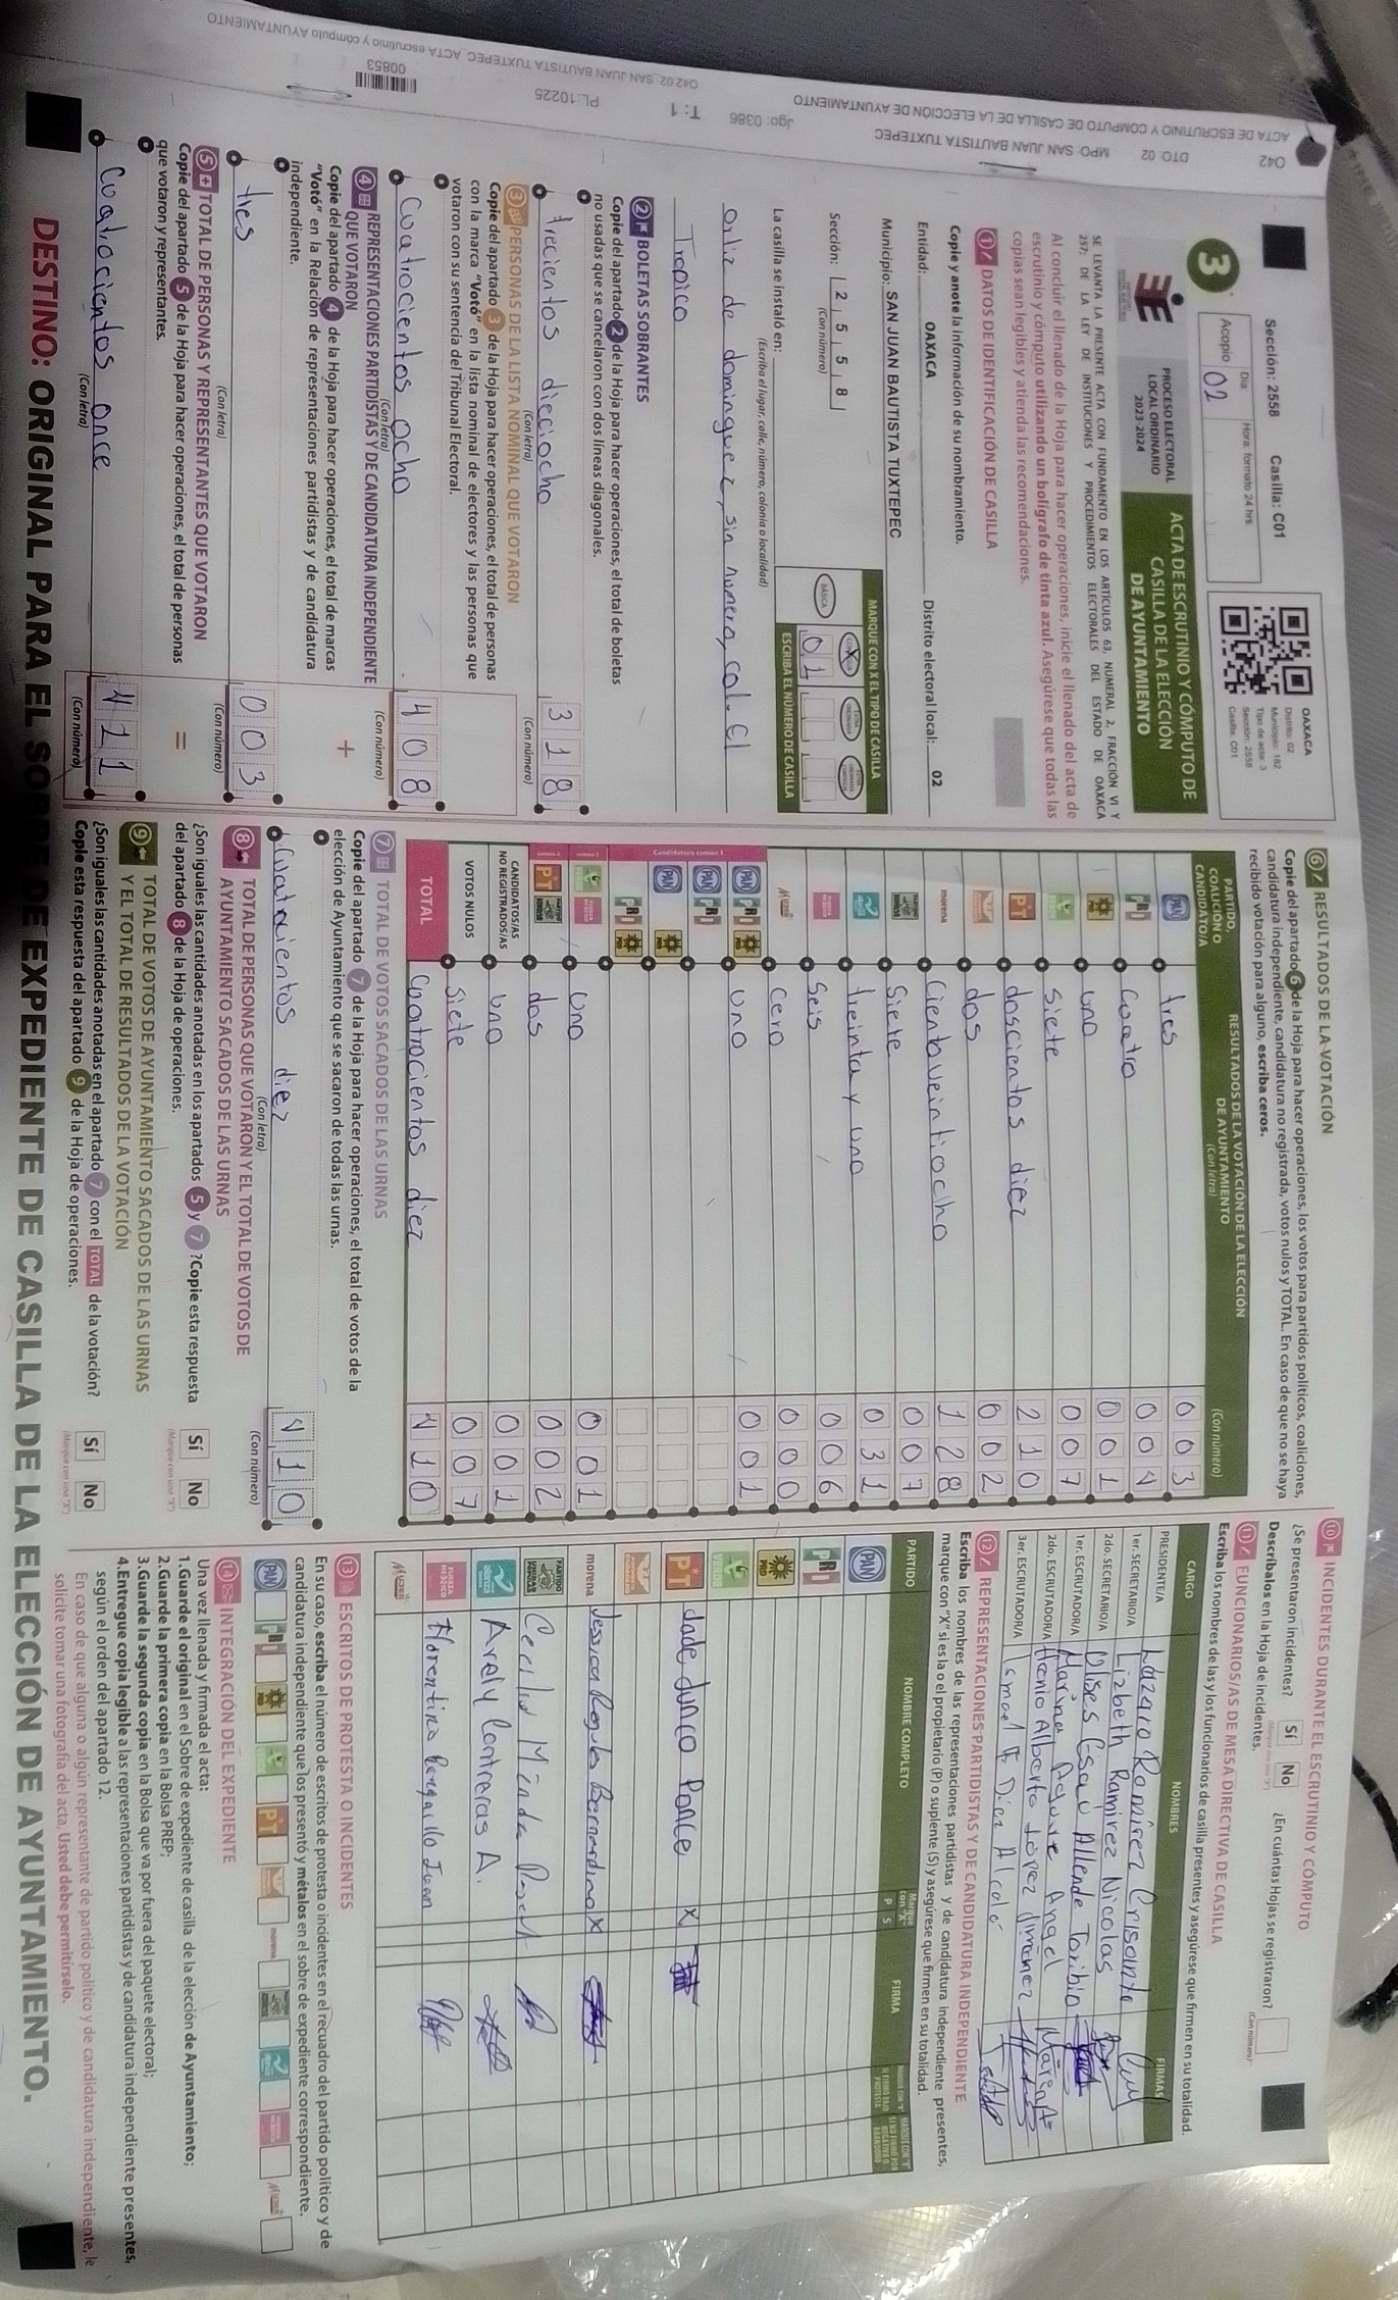 Sección: 2558 Casilla: C01
3
Acopio
Día
Hora: formato 24 hrs
02
OAXACA
Distrito: 02
Municipio: 182
Tipo de acta: 3
Sección: 2558
Casilla: C01
PROCESO ELECTORAL
LOCAL ORDINARIO
2023-2024
ACTA DE ESCRUTINIO Y CÓMPUTO DE
CASILLA DE LA ELECCIÓN
DE AYUNTAMIENTO
SE LEVANTA LA PRESENTE ACTA CON FUNDAMENTO EN LOS ARTÍCULOS 63, NUMERAL 2, FRACCIÓN VI Y
257; DE LA LEY DE INSTITUCIONES Y PROCEDIMIENTOS ELECTORALES DEL ESTADO DE OAXACA
Al concluir el llenado de la Hoja para hacer operaciones, inicie el llenado del acta de
escrutinio y cómputo utilizando un bolígrafo de tinta azul. Asegúrese que todas las
copias sean legibles y atienda las recomendaciones.
1 DATOS DE IDENTIFICACIÓN DE CASILLA
Copie y anote la información de su nombramiento.
Entidad: OAXACA Distrito electoral local: 02
Municipio: SAN JUAN BAUTISTA TUXTEPEC
Sección: 2 5 5 8
(Con número)
MARQUE CON X EL TIPO DE CASILLA
BÁSICA
X
01
ESCRIBA EL NÚMERO DE CASILLA
La casilla se instaló en:
(Escriba el lugar, calle, número, colonia o localidad)
ortiz de dominguez, sin numero, col. el
Tropico
2 BOLETAS SOBRANTES
Copie del apartado 2 de la Hoja para hacer operaciones, el total de boletas
no usadas que se cancelaron con dos líneas diagonales.
trecientos dieciocho 318
(Con letra) (Con número)
3 PERSONAS DE LA LISTA NOMINAL QUE VOTARON
Copie del apartado 3 de la Hoja para hacer operaciones, el total de personas
con la marca "Votó" en la lista nominal de electores y las personas que
votaron con su sentencia del Tribunal Electoral.
Cuatrocientos ocho 408
(Con letra) (Con número)
4 REPRESENTACIONES PARTIDISTAS Y DE CANDIDATURA INDEPENDIENTE
QUE VOTARON
Copie del apartado 4 de la Hoja para hacer operaciones, el total de marcas
"Votó" en la Relación de representaciones partidistas y de candidatura
independiente.
+
tres 003
(Con letra) (Con número)
5 TOTAL DE PERSONAS Y REPRESENTANTES QUE VOTARON
Copie del apartado 5 de la Hoja para hacer operaciones, el total de personas
que votaron y representantes.
=
Cuatrocientos once 411
(Con letra) (Con número)
6 RESULTADOS DE LA VOTACIÓN
Copie del apartado 6 de la Hoja para hacer operaciones, los votos para partidos políticos, coaliciones,
candidatura independiente, candidatura no registrada, votos nulos y TOTAL. En caso de que no se haya
recibido votación para alguno, escriba ceros.
PARTIDO,
COALICIÓN O
CANDIDATO/A
RESULTADOS DE LA VOTACIÓN DE LA ELECCIÓN
DE AYUNTAMIENTO
(Con letra) (Con número)
PAN tres 003
PRI Cuatro 004
PRD uno 001
VERDE siete 007
PT doscientos diez 210
dos 002
morena Cientoveintiocho 128
Siete 007
treinta y uno 031
Seis 006
Cero 000
PAN PRI PRD uno 001
PAN PRI
PAN PRD
PRI PRD
uno 001
PT dos 002
CANDIDATOS/AS
NO REGISTRADOS/AS uno 001
VOTOS NULOS siete 007
TOTAL Cuatrocientos diez 410
7 TOTAL DE VOTOS SACADOS DE LAS URNAS
Copie del apartado 7 de la Hoja para hacer operaciones, el total de votos de la
elección de Ayuntamiento que se sacaron de todas las urnas.
Cuatrocientos diez 410
(Con letra) (Con número)
8 TOTAL DE PERSONAS QUE VOTARON Y EL TOTAL DE VOTOS DE
AYUNTAMIENTO SACADOS DE LAS URNAS
¿Son iguales las cantidades anotadas en los apartados 5 y 7? Copie esta respuesta
del apartado 8 de la Hoja de operaciones.
Sí No
9 TOTAL DE VOTOS DE AYUNTAMIENTO SACADOS DE LAS URNAS
Y EL TOTAL DE RESULTADOS DE LA VOTACIÓN
¿Son iguales las cantidades anotadas en el apartado 7 con el TOTAL de la votación?
Copie esta respuesta del apartado 9 de la Hoja de operaciones.
Sí No
10 INCIDENTES DURANTE EL ESCRUTINIO Y CÓMPUTO
¿Se presentaron incidentes? Sí No ¿En cuántas Hojas se registraron?
Descríbalos en la Hoja de incidentes. (Con número)
11 FUNCIONARIOS/AS DE MESA DIRECTIVA DE CASILLA
Escriba los nombres de las y los funcionarios de casilla presentes y asegúrese que firmen en su totalidad.
CARGO NOMBRES FIRMAS
PRESIDENTE/A Lazaro Ramirez Crisanto
1er. SECRETARIO/A Lizbeth Ramirez Nicolas
2do. SECRETARIO/A Ulises Esau Allende Toribio
1er. ESCRUTADOR/A Marina Aguirre Angel
2do. ESCRUTADOR/A Alberto López Jimenez
3er. ESCRUTADOR/A Ismael F Diaz Alcalá
12 REPRESENTACIONES PARTIDISTAS Y DE CANDIDATURA INDEPENDIENTE
Escriba los nombres de las representaciones partidistas y de candidatura independiente presentes,
marque con "X" si es la o el propietario (P) o suplente (S) y asegúrese que firmen en su totalidad.
PARTIDO NOMBRE COMPLETO P S FIRMA
PAN
PRI
PRD
VERDE
PT Jade Junco Ponce X
morena Jessica Regules Bernardino X
Arely Contreras A.
Florentino
13 ESCRITOS DE PROTESTA O INCIDENTES
En su caso, escriba el número de escritos de protesta o incidentes en el recuadro del partido político y de
candidatura independiente que los presentó y métalos en el sobre de expediente correspondiente.
PAN PRI PRD VERDE PT morena
14 INTEGRACIÓN DEL EXPEDIENTE
Una vez llenada y firmada el acta:
1.Guarde el original en el Sobre de expediente de casilla de la elección de Ayuntamiento;
2.Guarde la primera copia en la Bolsa PREP;
3.Guarde la segunda copia en la Bolsa que va por fuera del paquete electoral;
4.Entregue copia legible a las representaciones partidistas y de candidatura independiente presentes,
según el orden del apartado 12.
En caso de que alguna o algún representante de partido político y de candidatura independiente, le
solicite tomar una fotografía del acta, Usted debe permitírselo.
DESTINO: ORIGINAL PARA EL SOBRE DE EXPEDIENTE DE CASILLA DE LA ELECCIÓN DE AYUNTAMIENTO.
042 DTO: 02 MPO: SAN JUAN BAUTISTA TUXTEPEC
ACTA DE ESCRUTINIO Y COMPUTO DE CASILLA DE LA ELECCIÓN DE AYUNTAMIENTO
Jgo: 0386 T: 1
PL:10225
042 02 SAN JUAN BAUTISTA TUXTEPEC ACTA escrutinio y cómputo AYUNTAMIENTO
00853